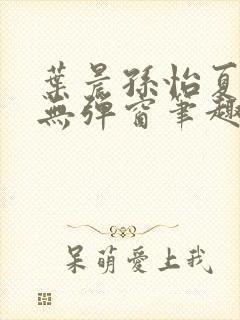 葉晨孫怡夏
無彈窗筆趣
呆萌愛上我